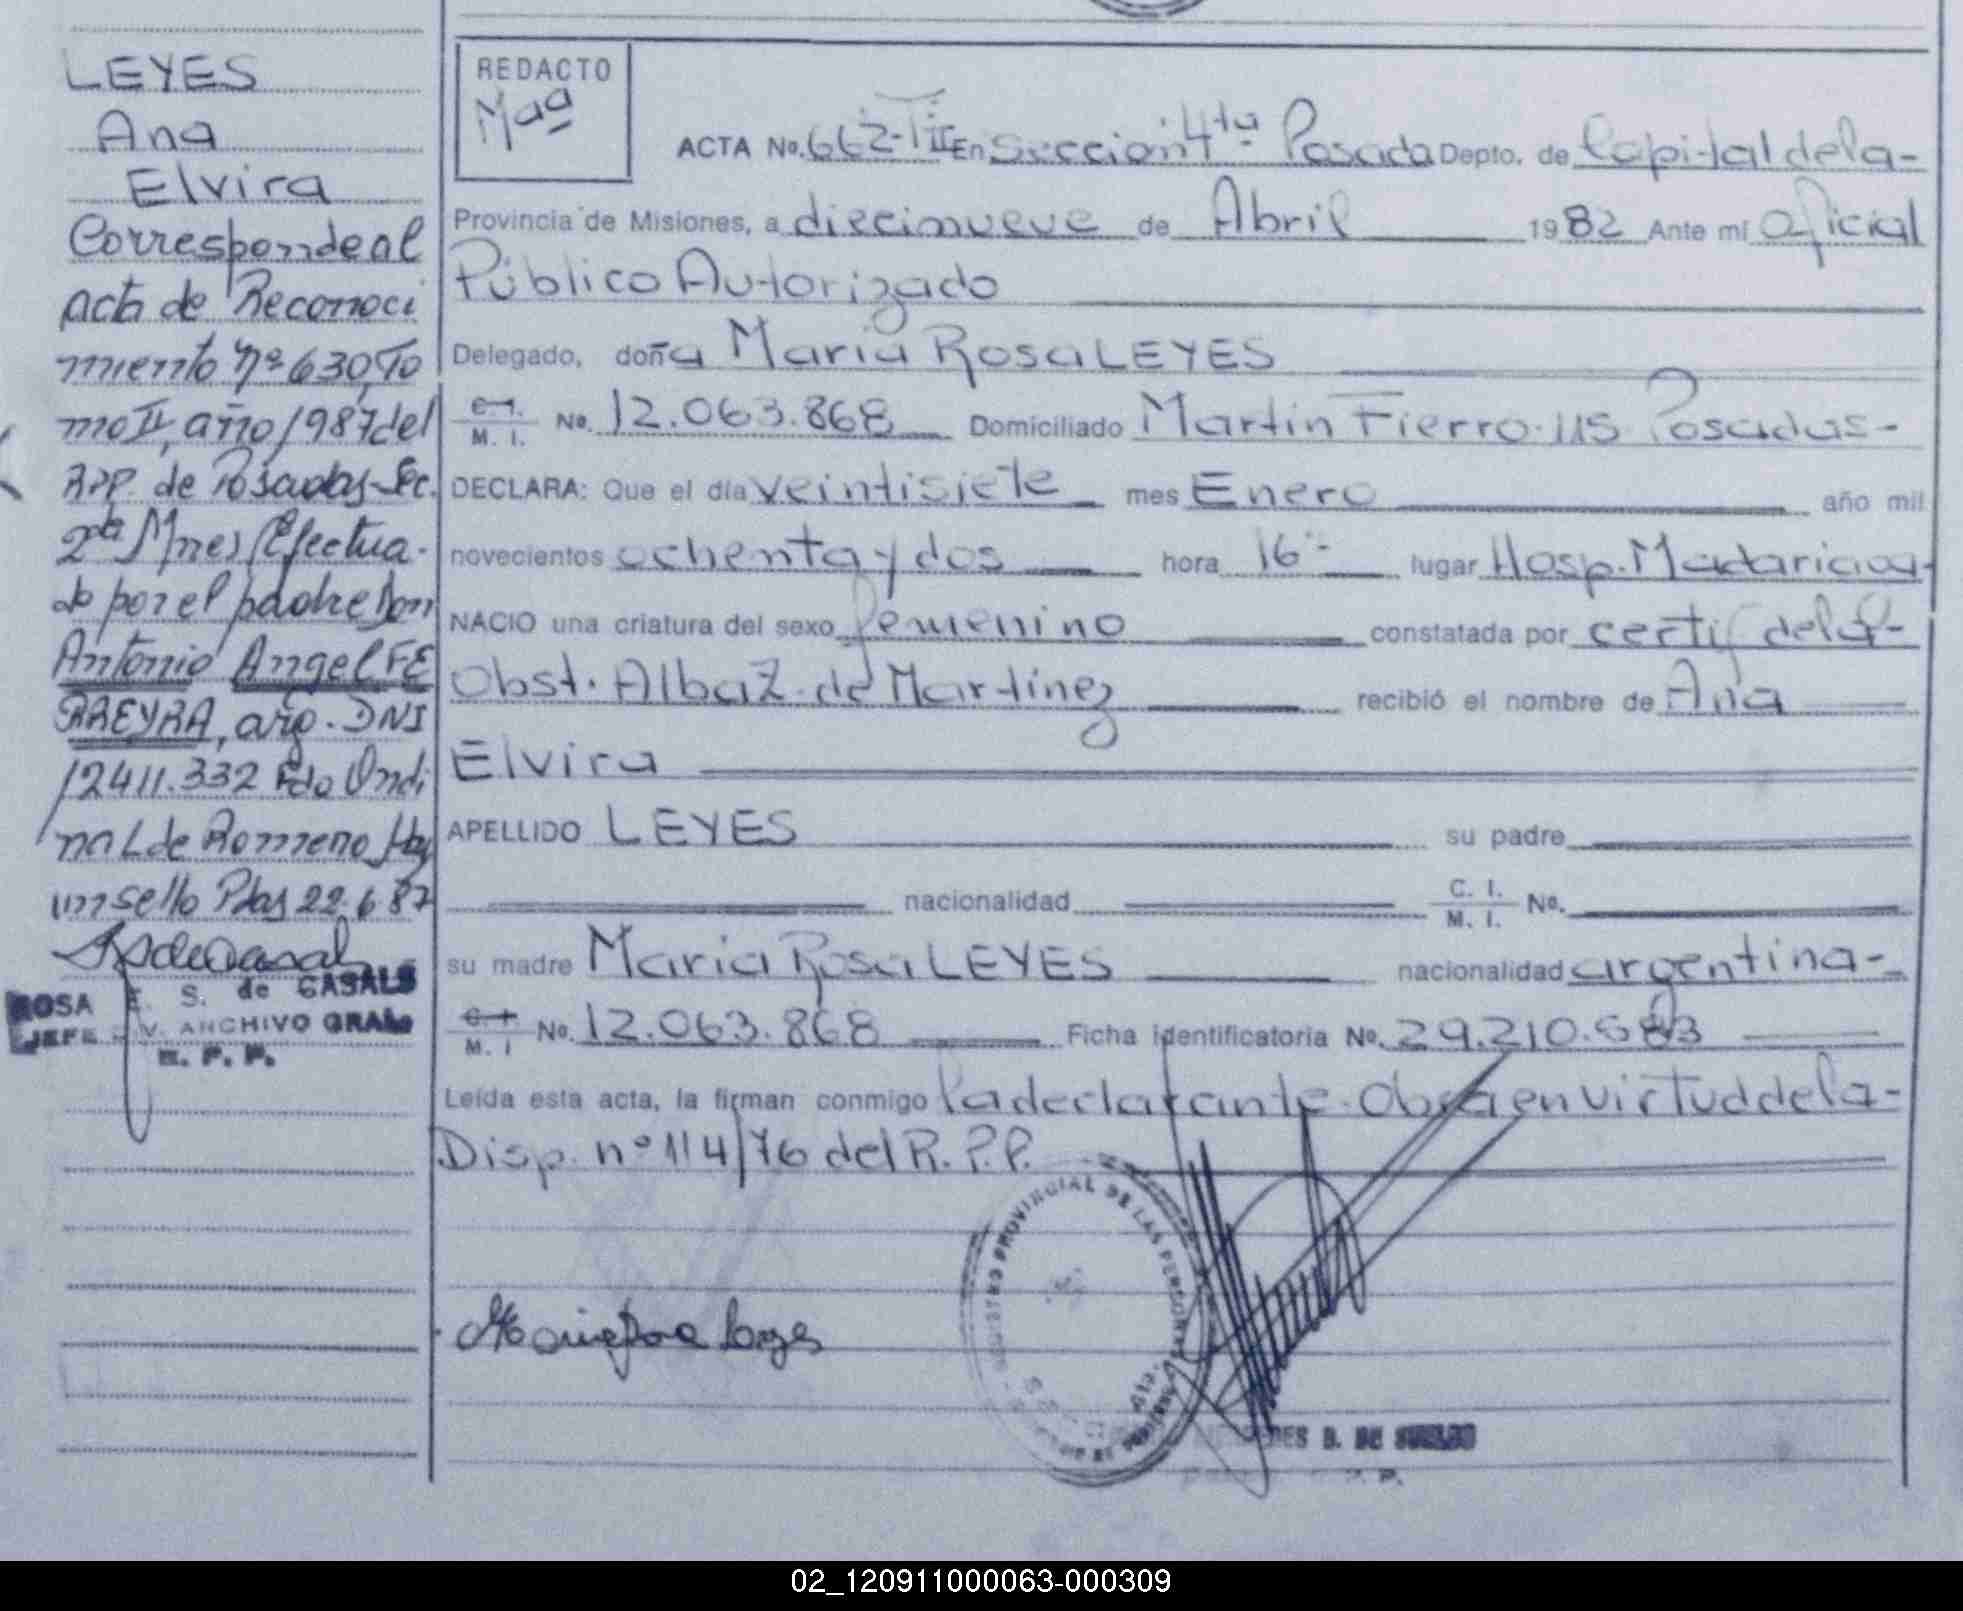 LEYES
Ana
Elvira
Corresponde al
acta de Reconoci
miento nº 630, To
mo II, año 1987 del
RPP. de Posadas Sec.
2da Mnes Efectua-
do por el padre Don
Antonio Angel FE
RREYRA, arg. DNI
12411.332 Fdo Ondi
na L de Romero Hay
un sello Pdas 22.6.87
ROSA E. S. de CASALS
JEFE DIV. ARCHIVO GRAL
R. P. P.
REDACTO
Mª
ACTA No. 662-TII En Sección 4ta Posada Depto. de Capital de la-
Provincia de Misiones, a diecinueve de Abril 1982 Ante mí Oficial
Público Autorizado
Delegado, doña Maria Rosa LEYES
C. I. M. I. No. 12.063.868 Domiciliado Martín Fierro 115 Posadas-
DECLARA: Que el día veintisiete mes Enero año mil
novecientos ochenta y dos hora 16- lugar Hosp. Madariaga-
NACIO una criatura del sexo femenino constatada por certif de la-
Obst. Alba Z. de Martínez recibió el nombre de Ana
Elvira
APELLIDO LEYES su padre
nacionalidad C. I. M. I. No.
su madre Maria Rosa LEYES nacionalidad argentina-
C. I. M. I No. 12.063.868 Ficha identificatoria No. 29.210.583
Leída esta acta, la firman conmigo la declarante. Obra en virtud de la-
Disp. nº 114/76 del R. P. P.
Maria Rosa Leyes
REGISTRO PROVINCIAL DE LAS PERSONAS
B. DE
02_120911000063-000309